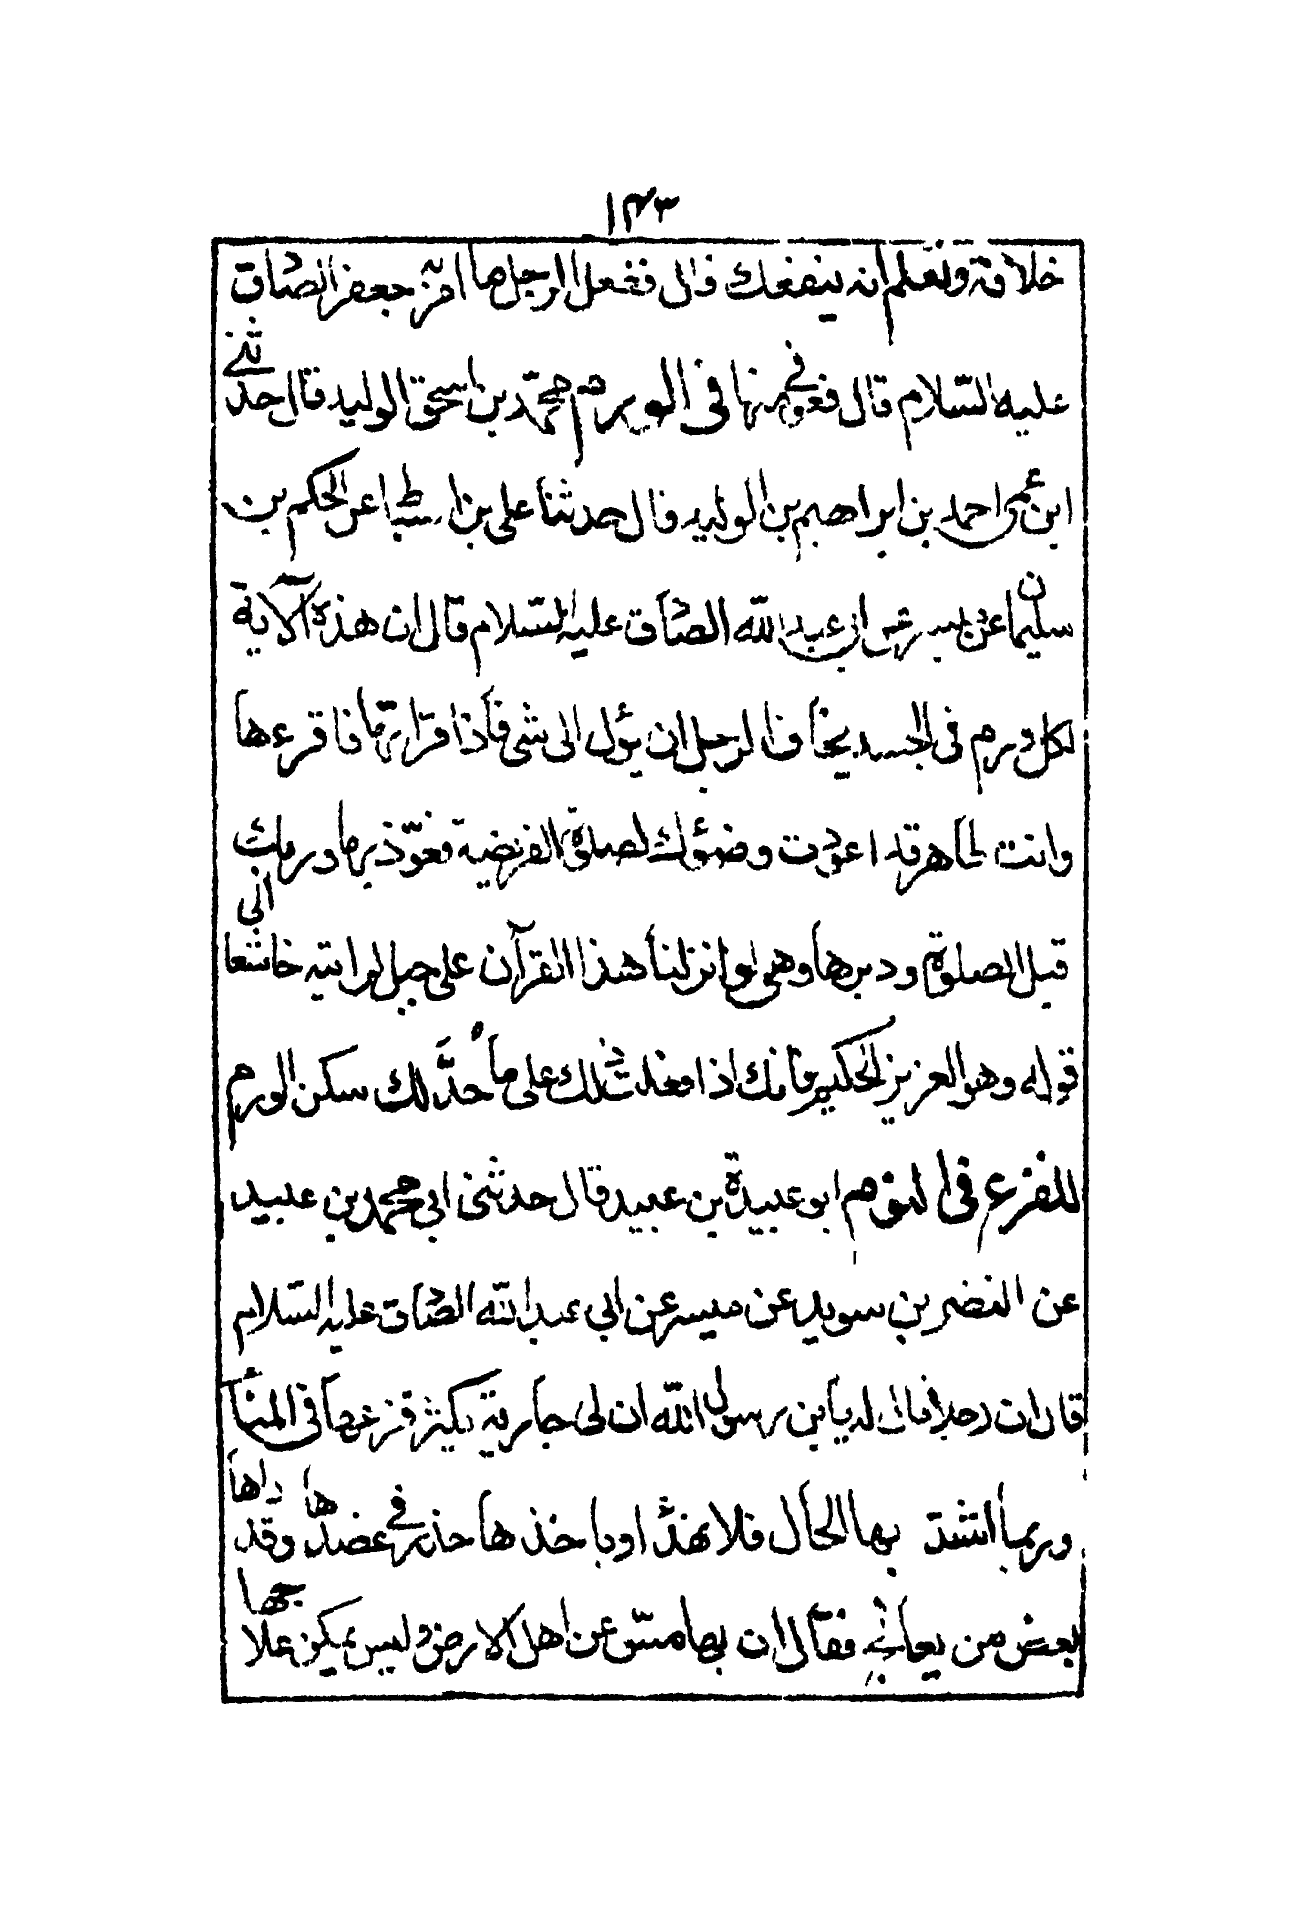 ١٤٣
خلاقة وتعلم انه ينفعك قال ففعل الرجل ما امره جعفر الصادق
عليه السلام قال فعوفي منها في الورم محمد بن اسحق الوليد قال حدثنى
ابن عمى احمد بن ابراهيم بن الوليد قال حدثنا على بن اسباط عن الحكم بن
سليمان عن ميسر عن ابى عبد الله الصادق عليه السلام قال ان هذه الآية
لكل ورم فى الجسد يخاف الرجل ان يؤل الى شى فاذا قراتها فاقرءها
وانت طاهر قد اعددت وضؤك لصلوة الفريضة فعوّذ بها ورمك
قبل الصلوة ودبرها وهى لو انزلنا هذا القرآن على جبل لرايته خاشعا الى
قوله وهو العزيز الحكيم فانك اذا فعلت ذلك على ما حدّ لك سكن الورم
للفزع فى النوم ابو عبيدة بن عبيد قال حدثنى ابى محمد بن عبيد
عن النضر بن سويد عن ميسر عن ابى عبد الله الصادق عليه السلام
قال ان رجلا قال له يابن رسول الله ان لى جارية يكثر فزعها فى المنام
وربما اشتد بها الحال فلا تهدأ وياخذها خذر في عضدها وقد راها
بعض من يعالج فقال ان بها مس من اهل الارض وليس يمكن علاجها